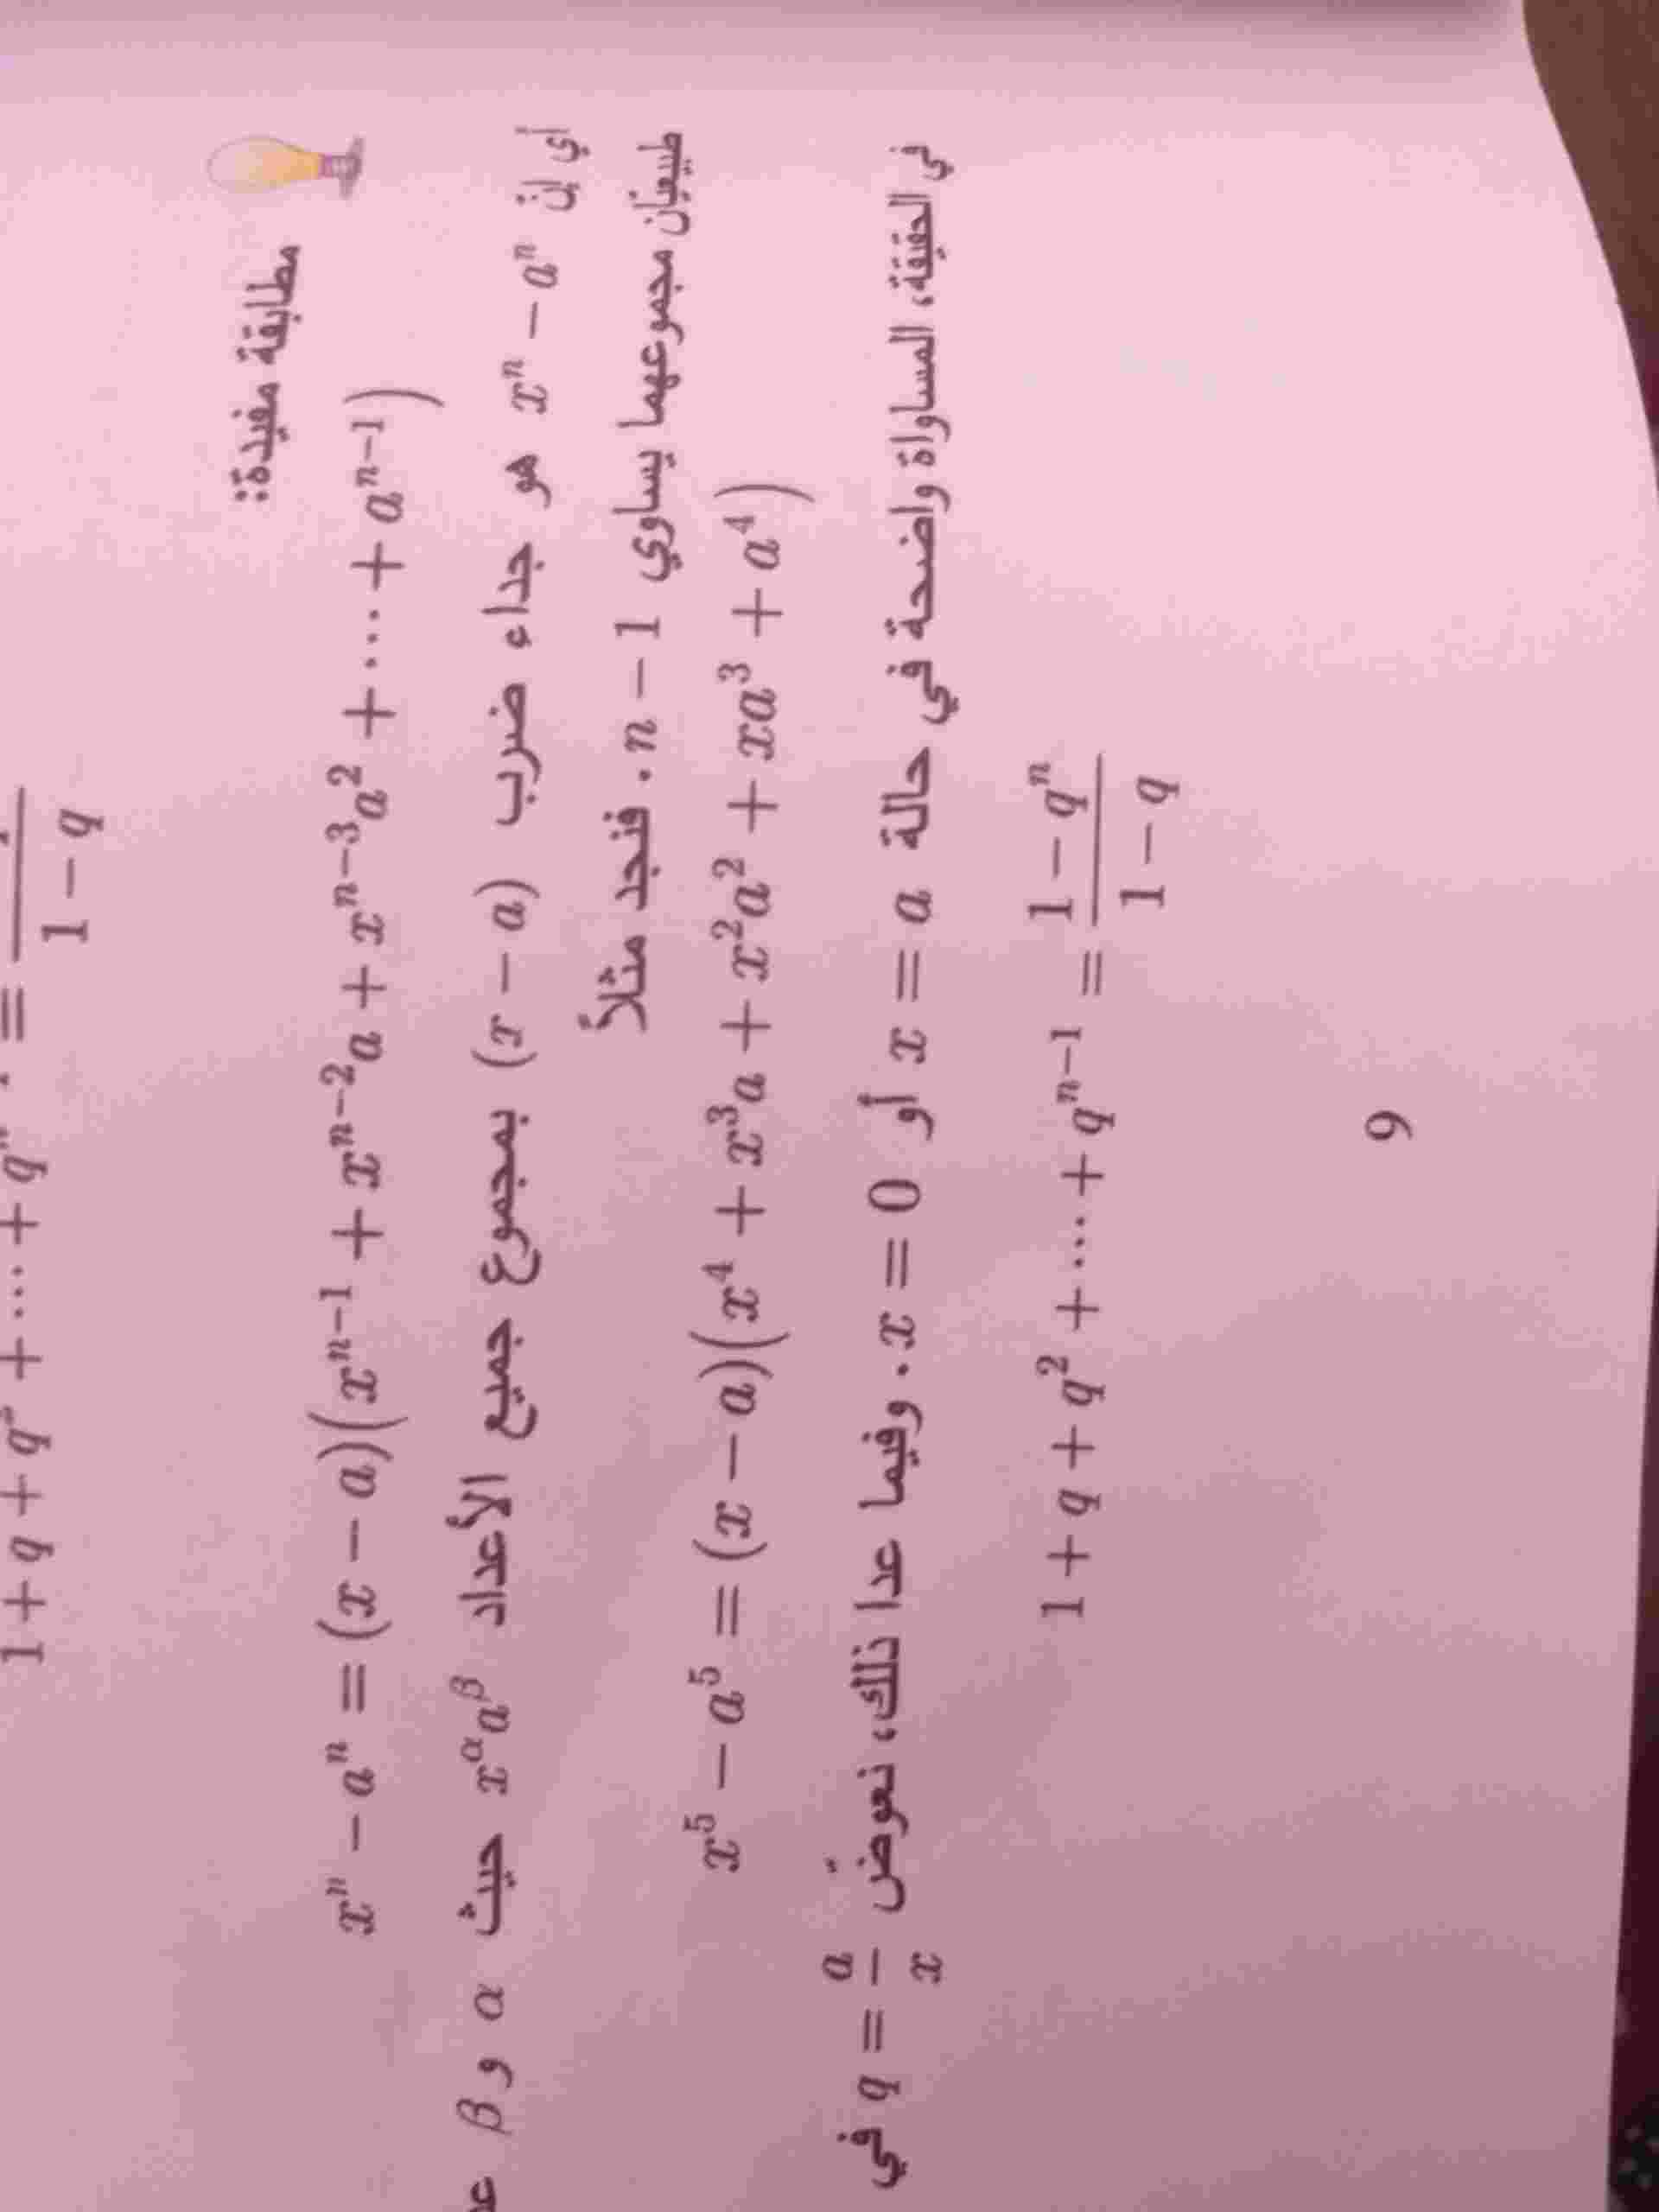 1 + q + q² + ⋯ + qⁿ = 1 − q
مطابقة مفيدة:
xⁿ − aⁿ = (x − a)(xⁿ⁻¹ + xⁿ⁻²a + xⁿ⁻³a² + ⋯ + aⁿ⁻¹)
أي إنّ xⁿ − aⁿ هو جداء ضرب (x − a) بمجموع جميع الأعداد x^α a^β حيث α و β
طبيعيّان مجموعهما يساوي n − 1. فنجد مثلاً
x⁵ − a⁵ = (x − a)(x⁴ + x³a + x²a² + xa³ + a⁴)
في الحقيقة، المساواة واضحة في حالة x = a أو x = 0. وفيما عدا ذلك، نعوّض q = a/x في
1 + q + q² + ⋯ + qⁿ⁻¹ = (1 − qⁿ)/(1 − q)
9